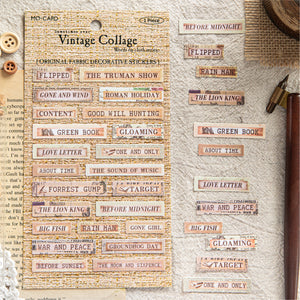 MO·CARD
1 Piece
Vintage Collage
ORIGINAL FABRIC DECORATIVE STICKERS
FLIPPED
THE TRUMAN SHOW
GONE AND WIND
ROMAN HOLIDAY
CONTENT
GOOD WILL HUNTING
GREEN BOOK
GLOAMING
LOVE LETTER
ONE AND ONLY
ABOUT TIME
THE SOUND OF MUSIC
FORREST GUMP
TARGET
THE LION KING
BEFORE MIDNIGHT
BIG FISH
RAIN MAN
GONE GIRL
WAR AND PEACE
GROUNDHOG DAY
BEFORE SUNSET
THE MOON AND SIXPENCE
BEFORE MIDNIGHT
FLIPPED
RAIN MAN
THE LION KING
GREEN BOOK
ABOUT TIME
LOVE LETTER
WAR AND PEACE
BIG FISH
GLOAMING
TARGET
ONE AND ONLY